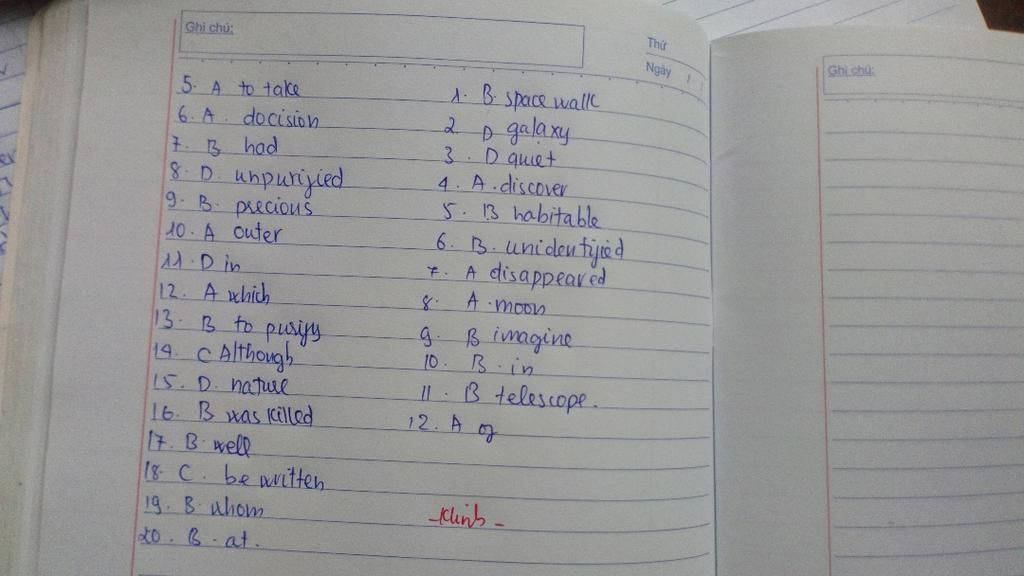 Ghi chú:
Thứ
Ngày /
5. A to take
6. A. docision
7. B had
8. D. unpurified
9. B. precious
10. A outer
11. D in
12. A which
13. B to purify
14. C Although
15. D. nature
16. B was killed
17. B. well
18. C. be written
19. B. whom
20. B. at.
1. B. space walk
2 D galaxy
3. D quiet
4. A. discover
5. B habitable
6. B. unidentified
7. A disappeared
8. A. moon
9. B imagine
10. B. in
11. B telescope.
12. A of
Ghi chú: